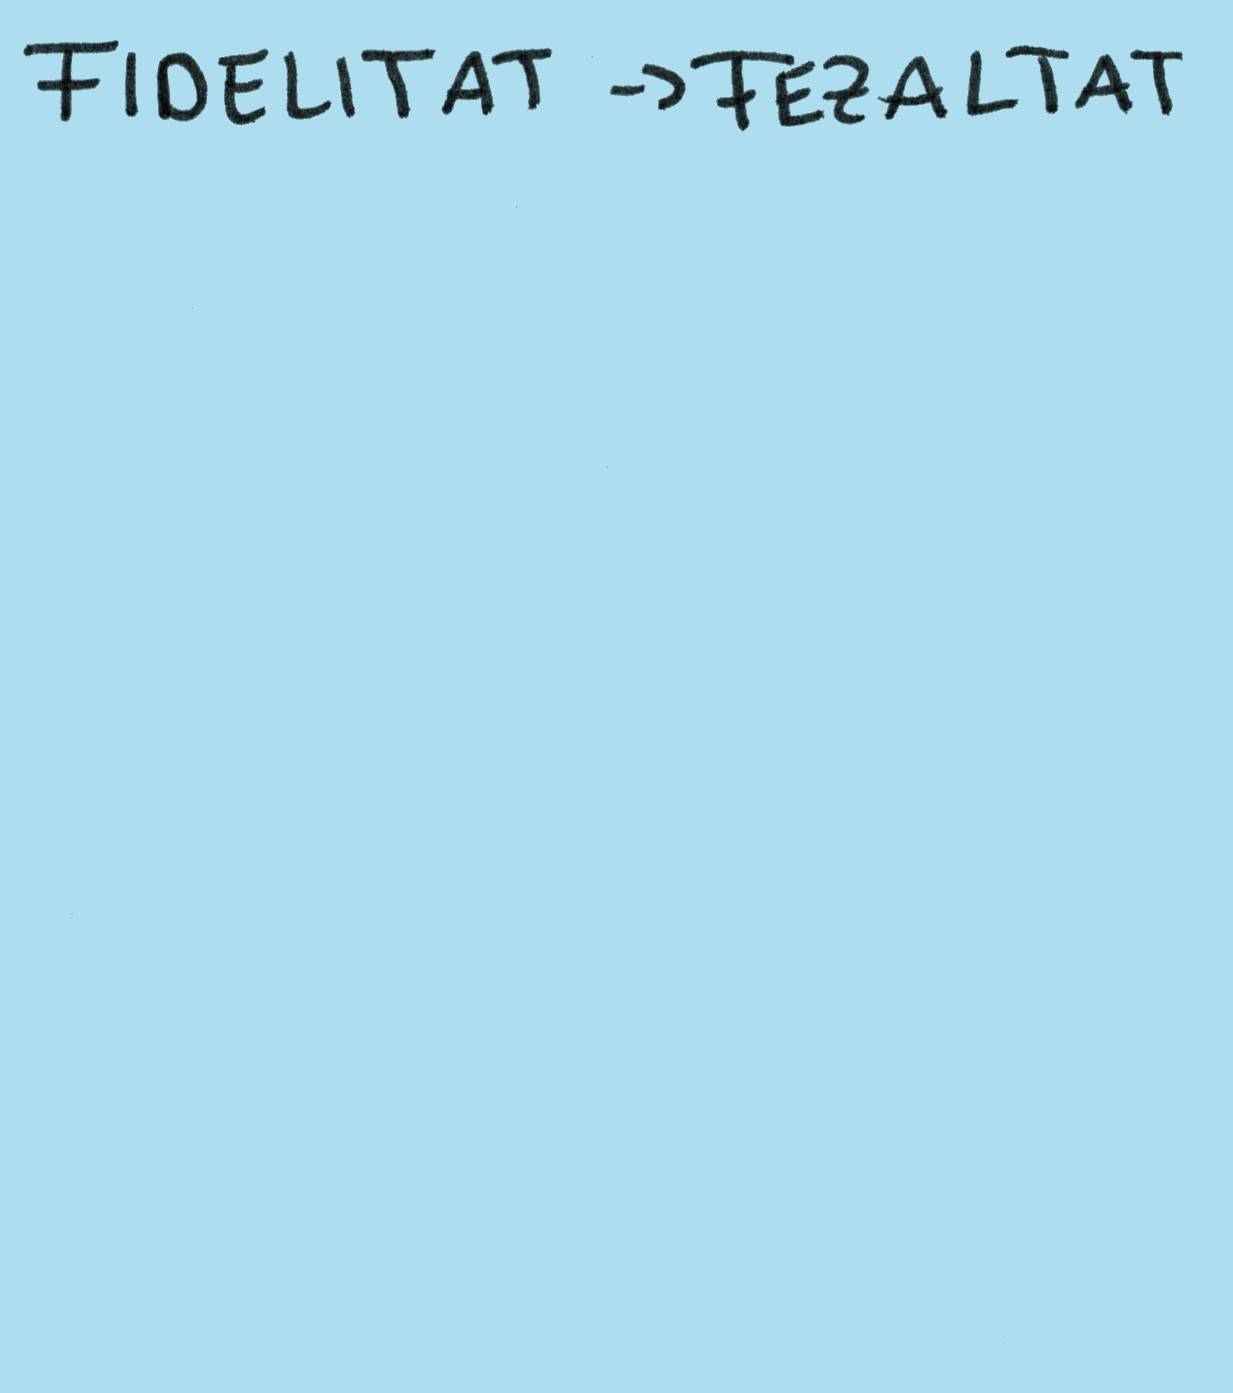 FIDELITAT -> FEZALTAT